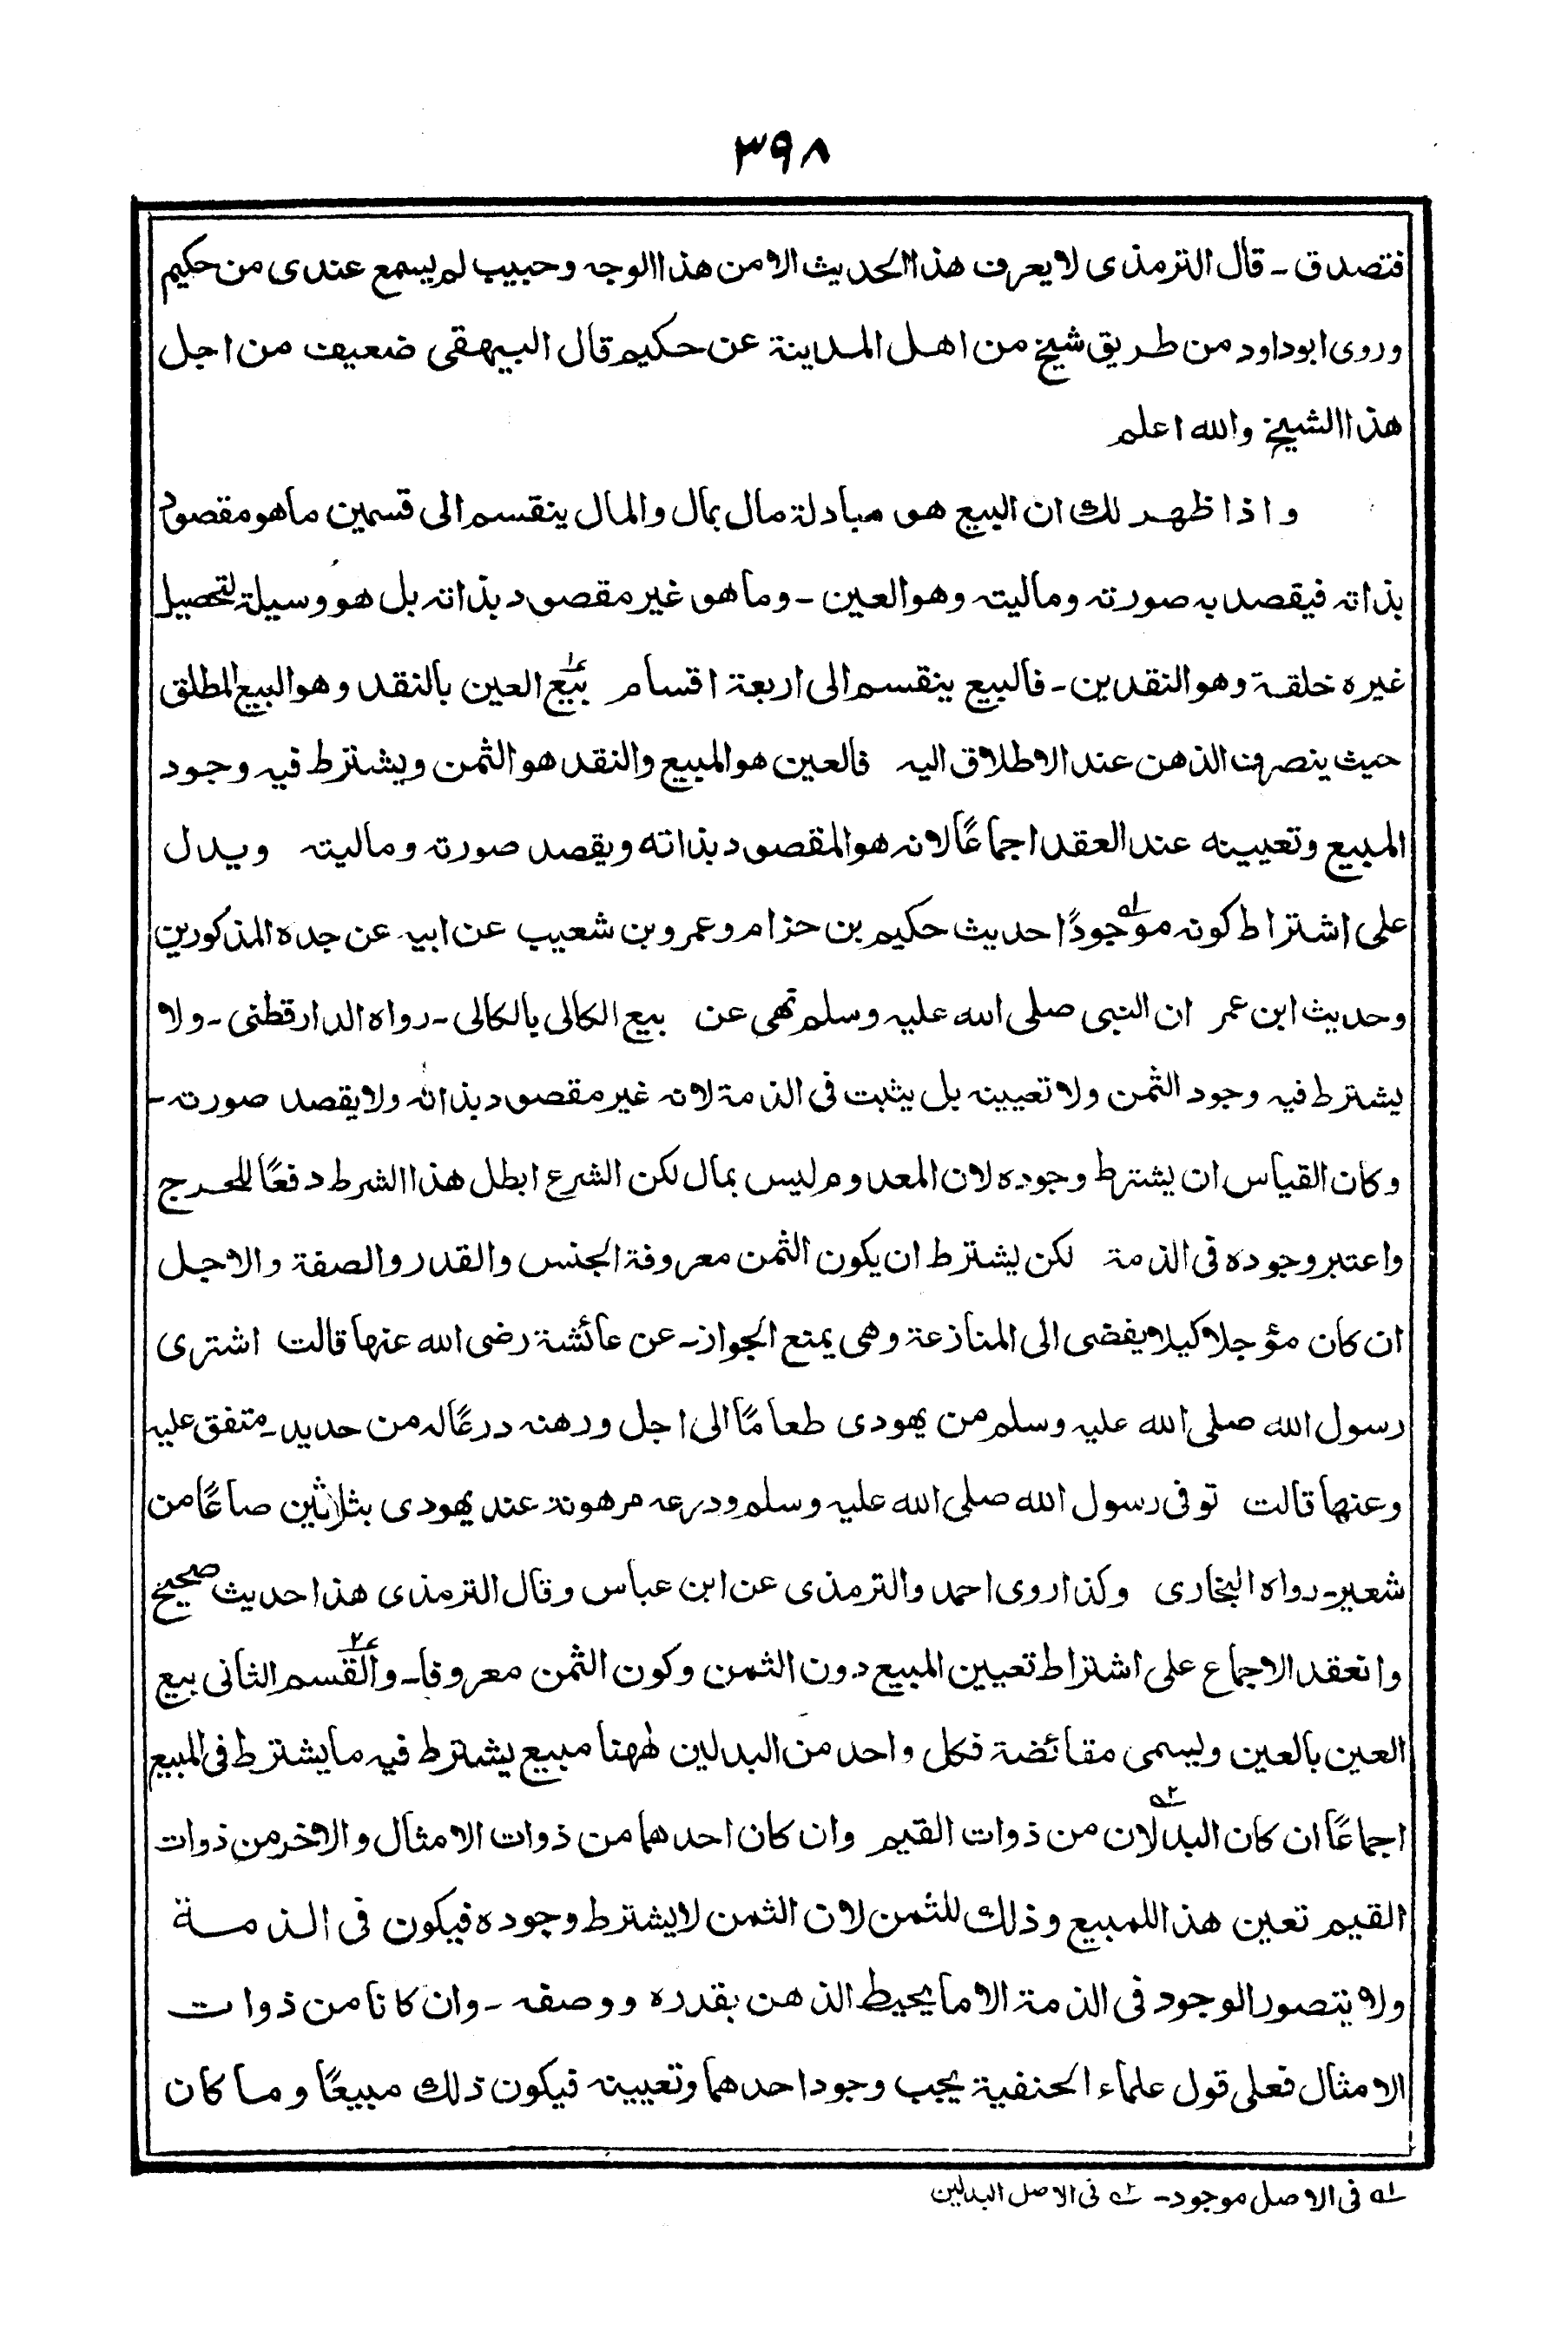 ٣٩٨
فتصدق ـ قال الترمذى لا يعرف هذا الحديث الا من هذا الوجه وحبيب لم يسمع عندى من حكيم
وروى ابوداود من طريق شيخ من اهل المدينة عن حكيم قال البيهقى ضعيف من اجل
هذا الشيخ والله اعلم
واذا ظهر لك ان البيع هو مبادلة مال بمال والمال ينقسم الى قسمين ما هو مقصود
بذاته فيقصد به صورته وماليته وهو العين ـ وما هو غير مقصود بذاته بل هو وسيلة لتحصيل
غيره خلقة وهو النقدين ـ فالبيع ينقسم الى اربعة اقسام ؏١ بيع العين بالنقد وهو البيع المطلق
حيث ينصرف الذهن عند الاطلاق اليه فالعين هو المبيع والنقد هو الثمن ويشترط فيه وجود
المبيع وتعيينه عند العقد اجماعًا لانه هو المقصود بذاته ويقصد صورته وماليته ويدل
على اشتراط كونه موجودًا ١ه حديث حكيم بن حزام وعمرو بن شعيب عن ابيه عن جده المذكورين
وحديث ابن عمر ان النبى صلى الله عليه وسلم نهى عن بيع الكالى بالكالى ـ رواه الدارقطنى ـ ولا
يشترط فيه وجود الثمن ولا تعيينه بل يثبت فى الذمة لانه غير مقصود بذاته ولا يقصد صورته ـ
وكان القياس ان يشترط وجوده لان المعدوم ليس بمال لكن الشرع ابطل هذا الشرط دفعًا للحرج
واعتبر وجوده فى الذمة لكن يشترط ان يكون الثمن معروفة الجنس والقدر والصفة والاجل
ان كان مؤجلا كيلا يفضى الى المنازعة وهى يمنع الجواز ـ عن عائشة رضى الله عنها قالت اشترى
رسول الله صلى الله عليه وسلم من يهودى طعامًا الى اجل ورهنه درعًا له من حديد ـ متفق عليه
وعنها قالت توفى رسول الله صلى الله عليه وسلم ودرعه مرهونة عند يهودى بثلاثين صاعًا من
شعير ـ رواه البخارى وكذا روى احمد والترمذى عن ابن عباس وقال الترمذى هذا حديث صحيح
وانعقد الاجماع على اشتراط تعيين المبيع دون الثمن وكون الثمن معروفا ـ ؏٢ والقسم الثانى بيع
العين بالعين ويسمى مقائضة فكل واحد من البدلين لههنا مبيع يشترط فيه ما يشترط فى المبيع
اجماعًا ان كان البدلان ٢ه من ذوات القيم وان كان احدهما من ذوات الامثال والاخر من ذوات
القيم تعين هذا للمبيع وذلك للثمن لان الثمن لا يشترط وجوده فيكون فى الذمة
ولا يتصور الوجود فى الذمة الا ما يحيط الذهن بقدره ووصفه ـ وان كانا من ذوات
الامثال فعلى قول علماء الحنفية يجب وجود احدهما وتعيينه فيكون ذلك مبيعًا وما كان
١ه فى الاصل موجود ـ ٢ه فى الاصل البدلين